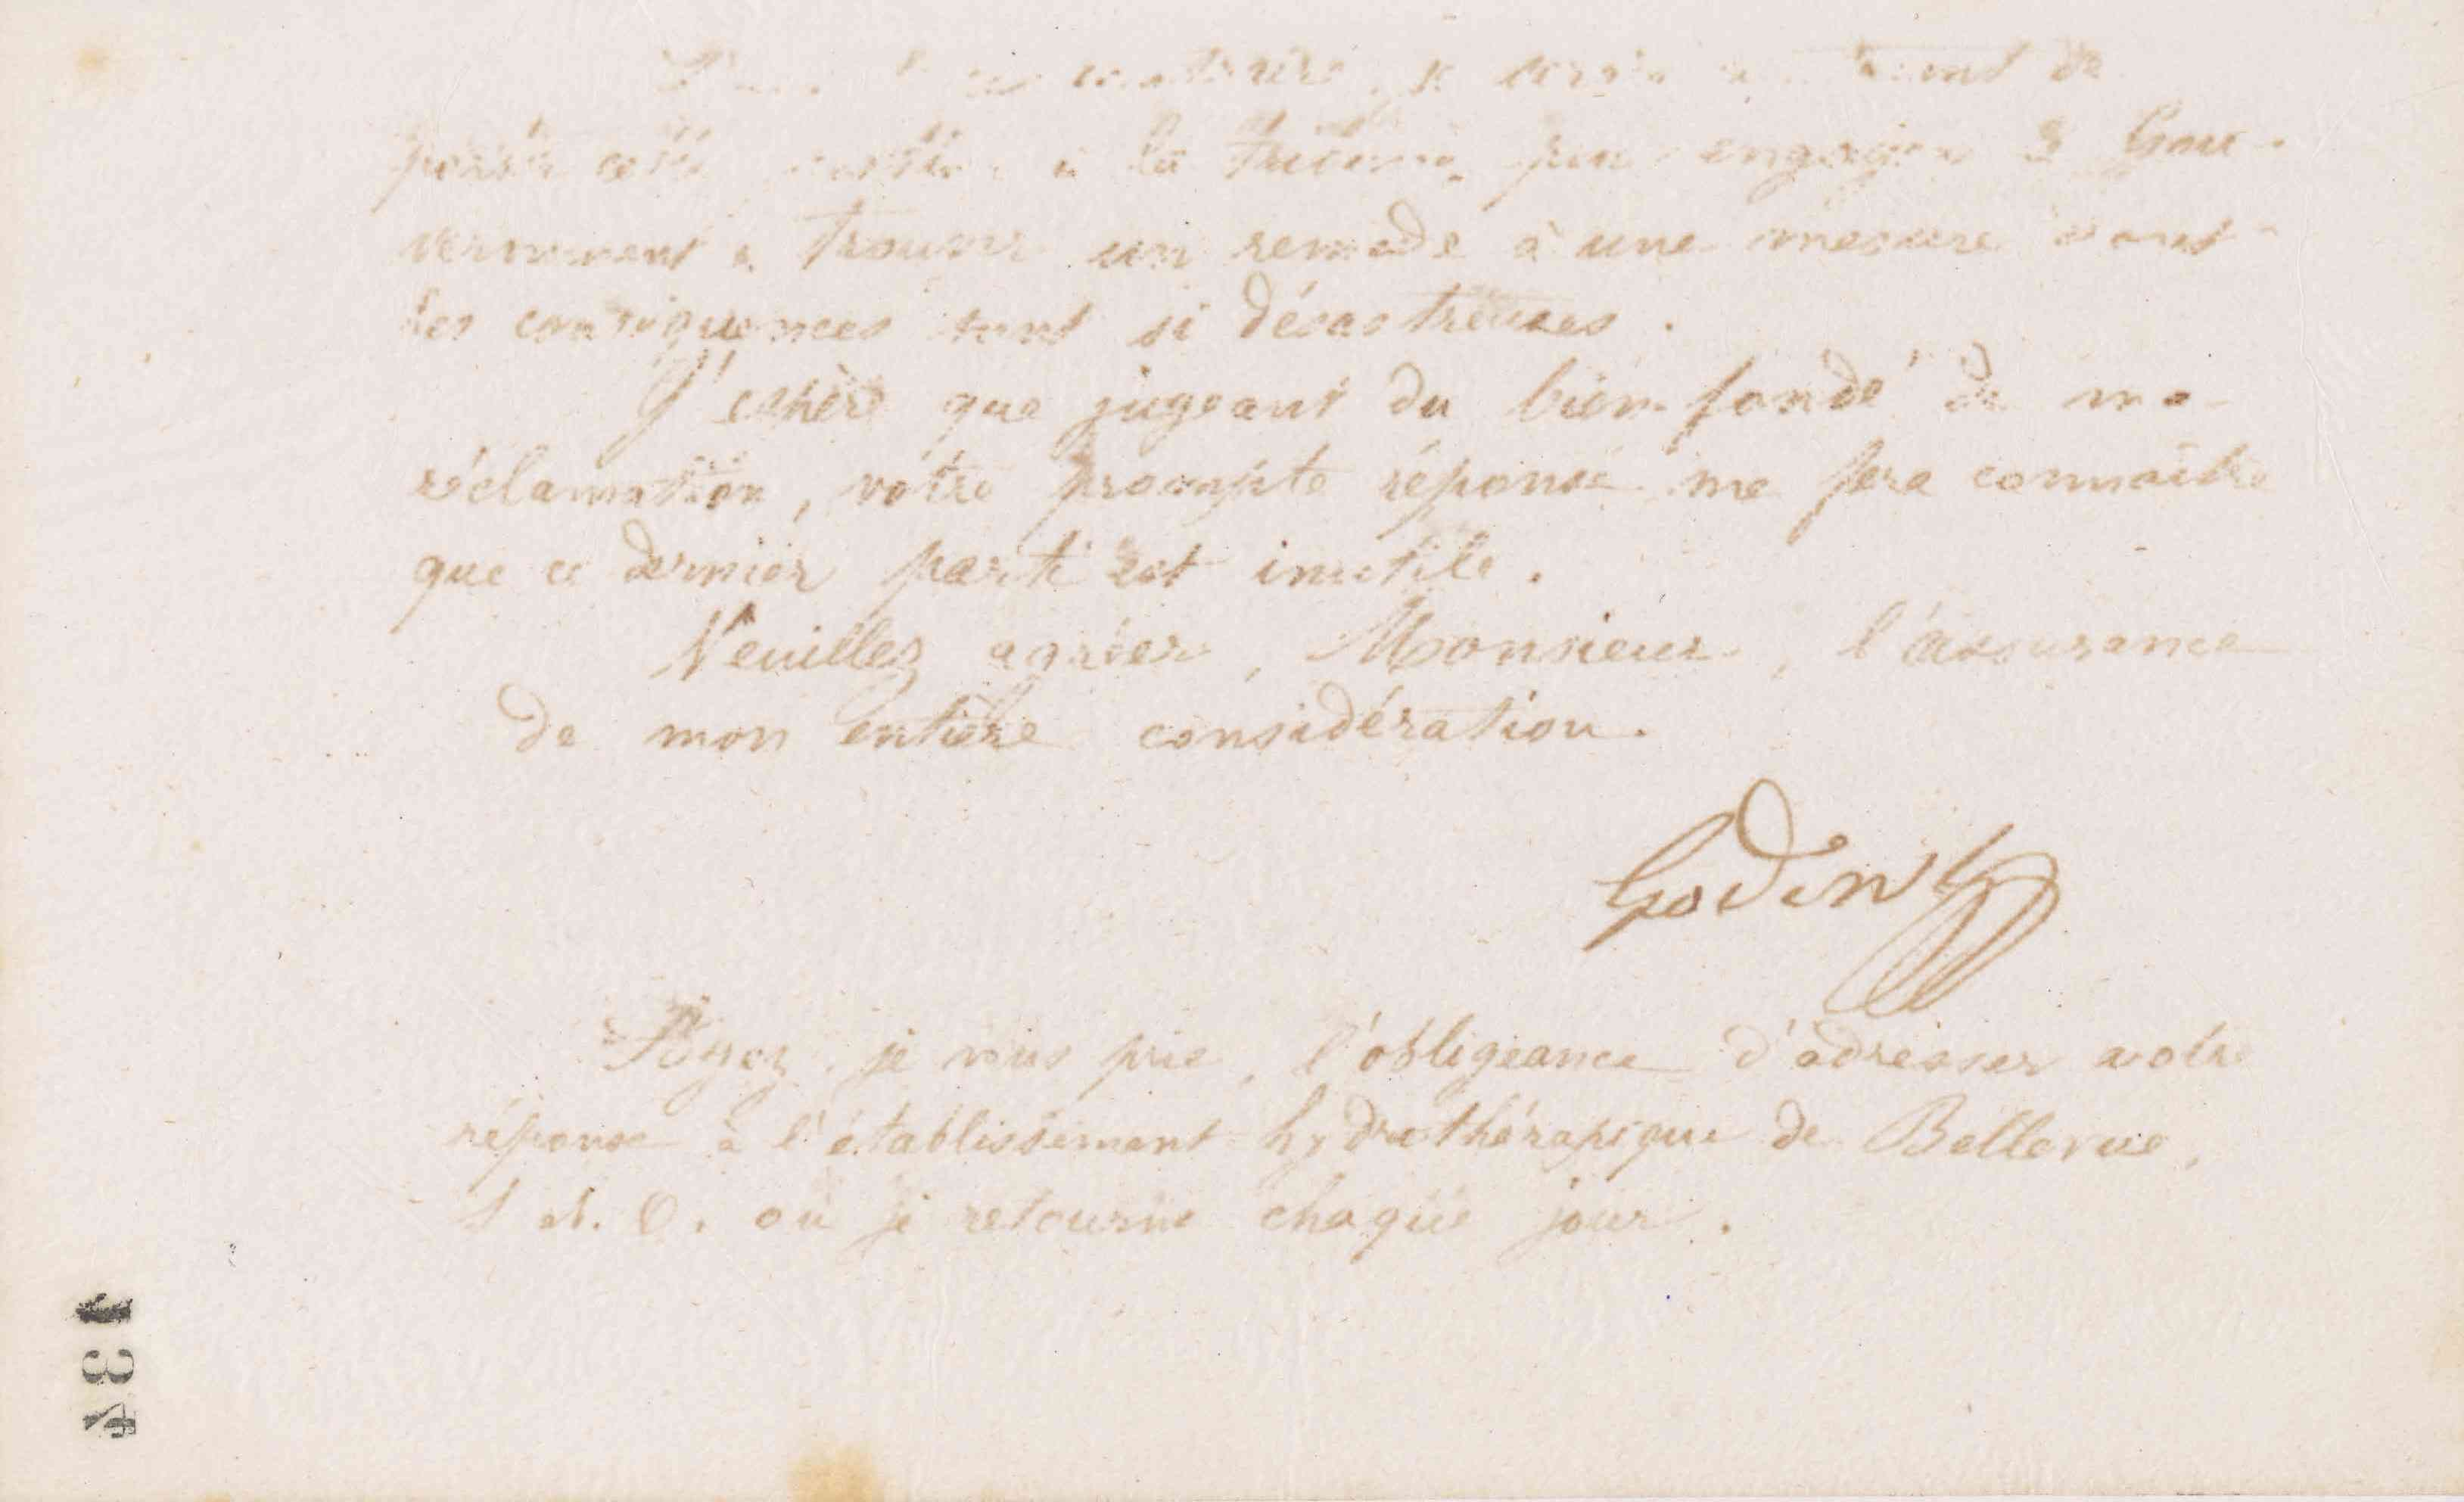 contraire, je serai de
porter cette question à la tribune, pour engager le Gou-
vernement à trouver un remède à une mesure dont
les conséquences sont si désastreuses.
J'espère que jugeant du bien-fondé de ma
réclamation, votre prompte réponse me fera connaître
que ce dernier parti est inutile.
Veuillez agréer, Monsieur, l'assurance
de mon entière considération.
Godin
Ayez, je vous prie, l'obligeance d'adresser votre
réponse à l'établissement hydrothérapique de Bellevue,
S. et. O. où je retourne chaque jour.
134